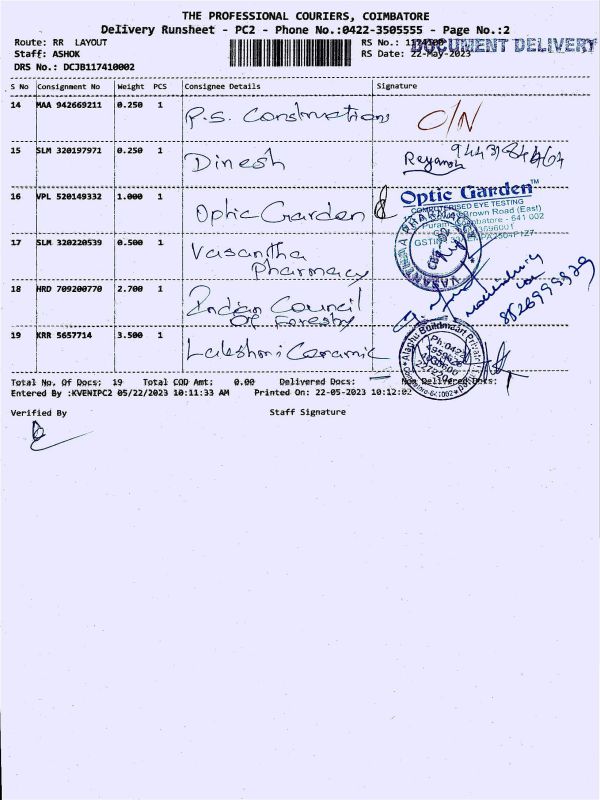 THE PROFESSIONAL COURIERS, COIMBATORE
Delivery Runsheet - PC2 - Phone No.:0422-3505555 - Page No.:2
Route: RR LAYOUT
RS No.:
DOCUMENT DELIVERY
Staff: ASHOK
RS Date: 22-May-2023
DRS No.: DCJB117410002
S No Consignment No Weight PCS Consignee Details Signature
14 MAA 942669211 0.250 1 P.S. Constructions O/N
15 SLM 320197971 0.250 1 Dinesh
16 VPL 520149332 1.000 1 Optic Garden
Optic Garden™
COMPUTERISED EYE TESTING
Brown Road (East)
Coimbatore - 641 002
17 SLM 320220539 0.500 1 Vasantha
Pharmacy
18 HRD 709200770 2.700 1 Indian Council
Of Foresty
19 KRR 5657714 3.500 1 Lakshmi Ceramic
Total No. Of Docs: 19 Total COD Amt: 0.00 Delivered Docs: Non Delivered Docs:
Entered By :KVENIPC2 05/22/2023 10:11:33 AM Printed On: 22-05-2023 10:12:02
Verified By Staff Signature